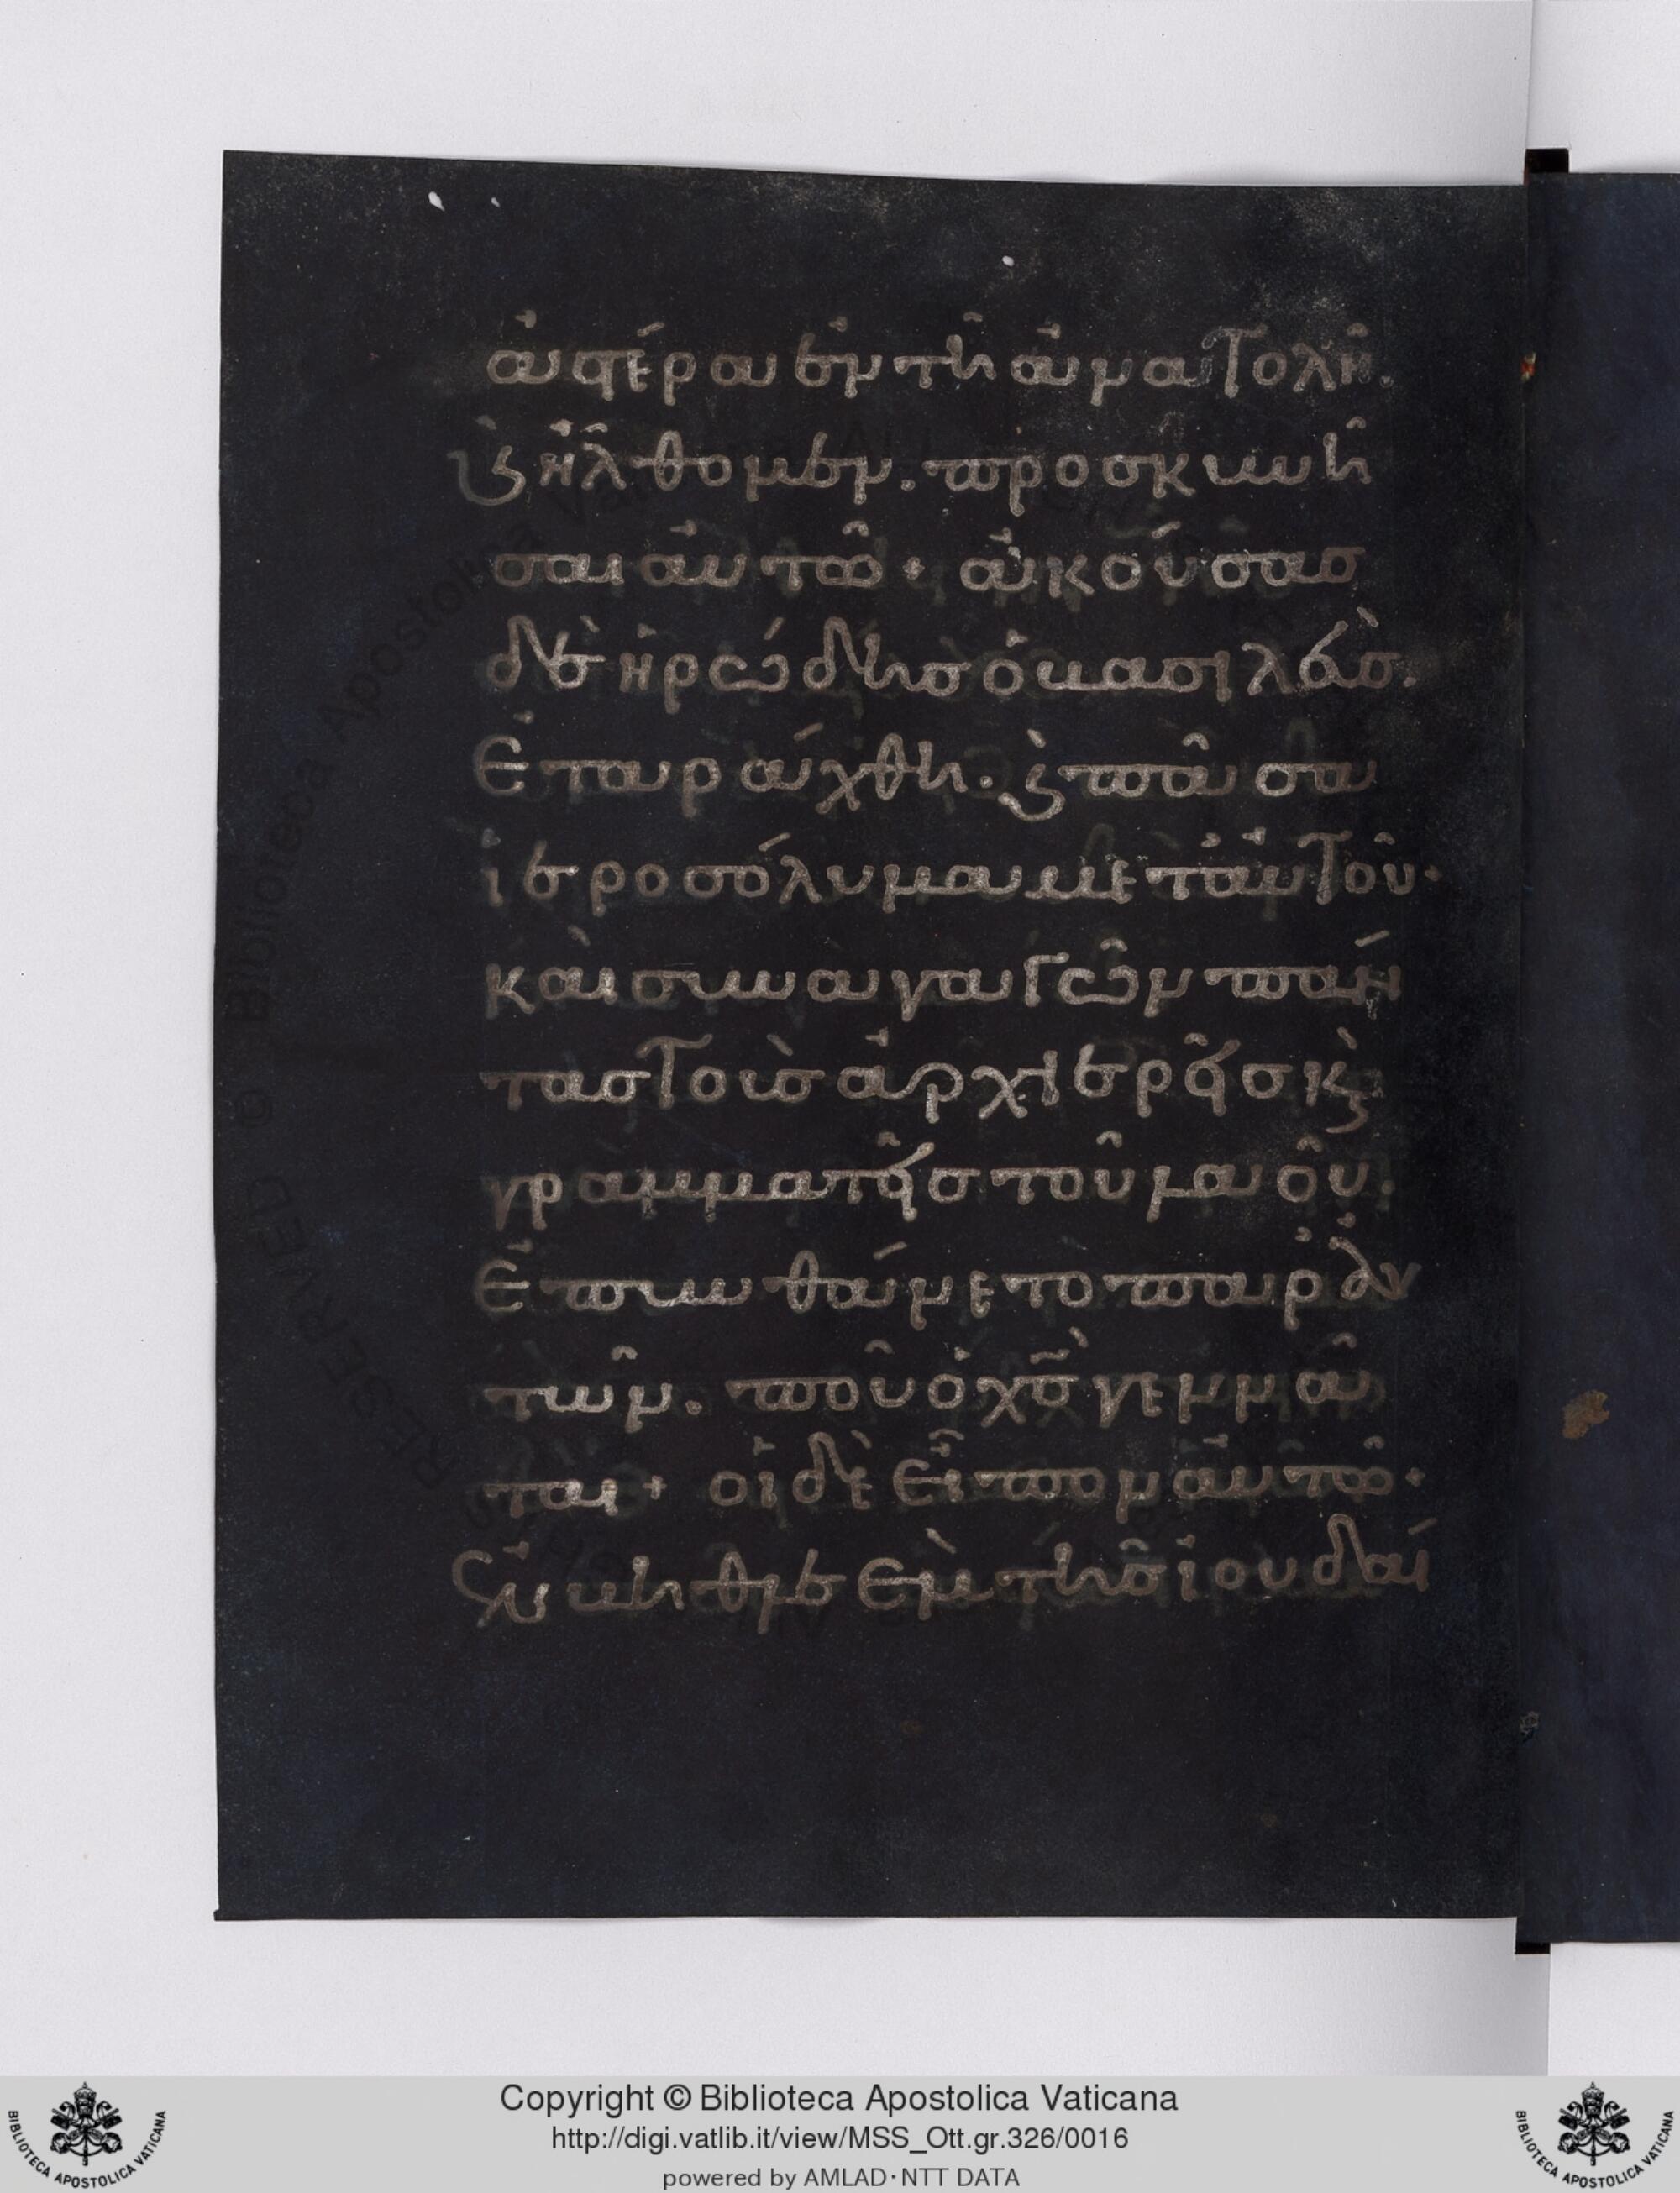 ἀϲτέρα ἐν τῆ ἀνατολῆ.
ϗ ἤλθομεν. προσκυνῆ
σαι ἀυτῶ + ἀκούσασ
δὲ ἡρώδησ ὁ βασιλεύσ.
Ἐταράχθη. ϗ πᾶσα
ἱεροσόλυμα μετ ἀυτοῦ·
καὶ συναγαγὼν πάν
τασ τοὺσ ἀρχιερεῖσ κ̀
γραμματεῖσ τοῦ λαοῦ.
Ἐπυνθάνετο παρ ἀυ
τῶν. ποῦ ὁ χ̅σ̅ γεννᾶ
ται + οἱ δὲ εἶπον ἀυτῶ·
Ἐν βηθλεὲμ τῆσ ἰουδαί
Copyright © Biblioteca Apostolica Vaticana
http://digi.vatlib.it/view/MSS_Ott.gr.326/0016
powered by AMLAD·NTT DATA
BIBLIOTECA APOSTOLICA VATICANA
BIBLIOTECA APOSTOLICA VATICANA